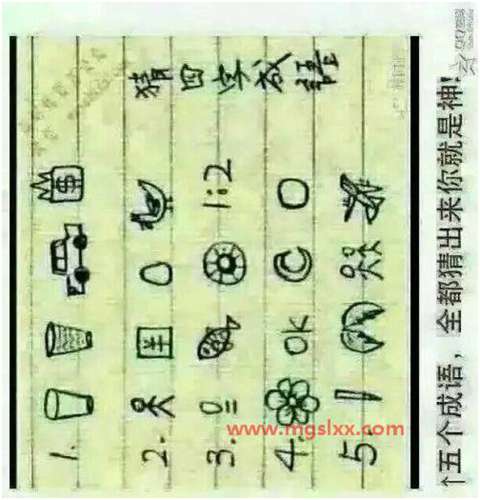 猜四字成語
1. $
2.
3. 1:2
4. OK
5.
↑五个成语，全都猜出来你就是神!
www.mgslxx.com